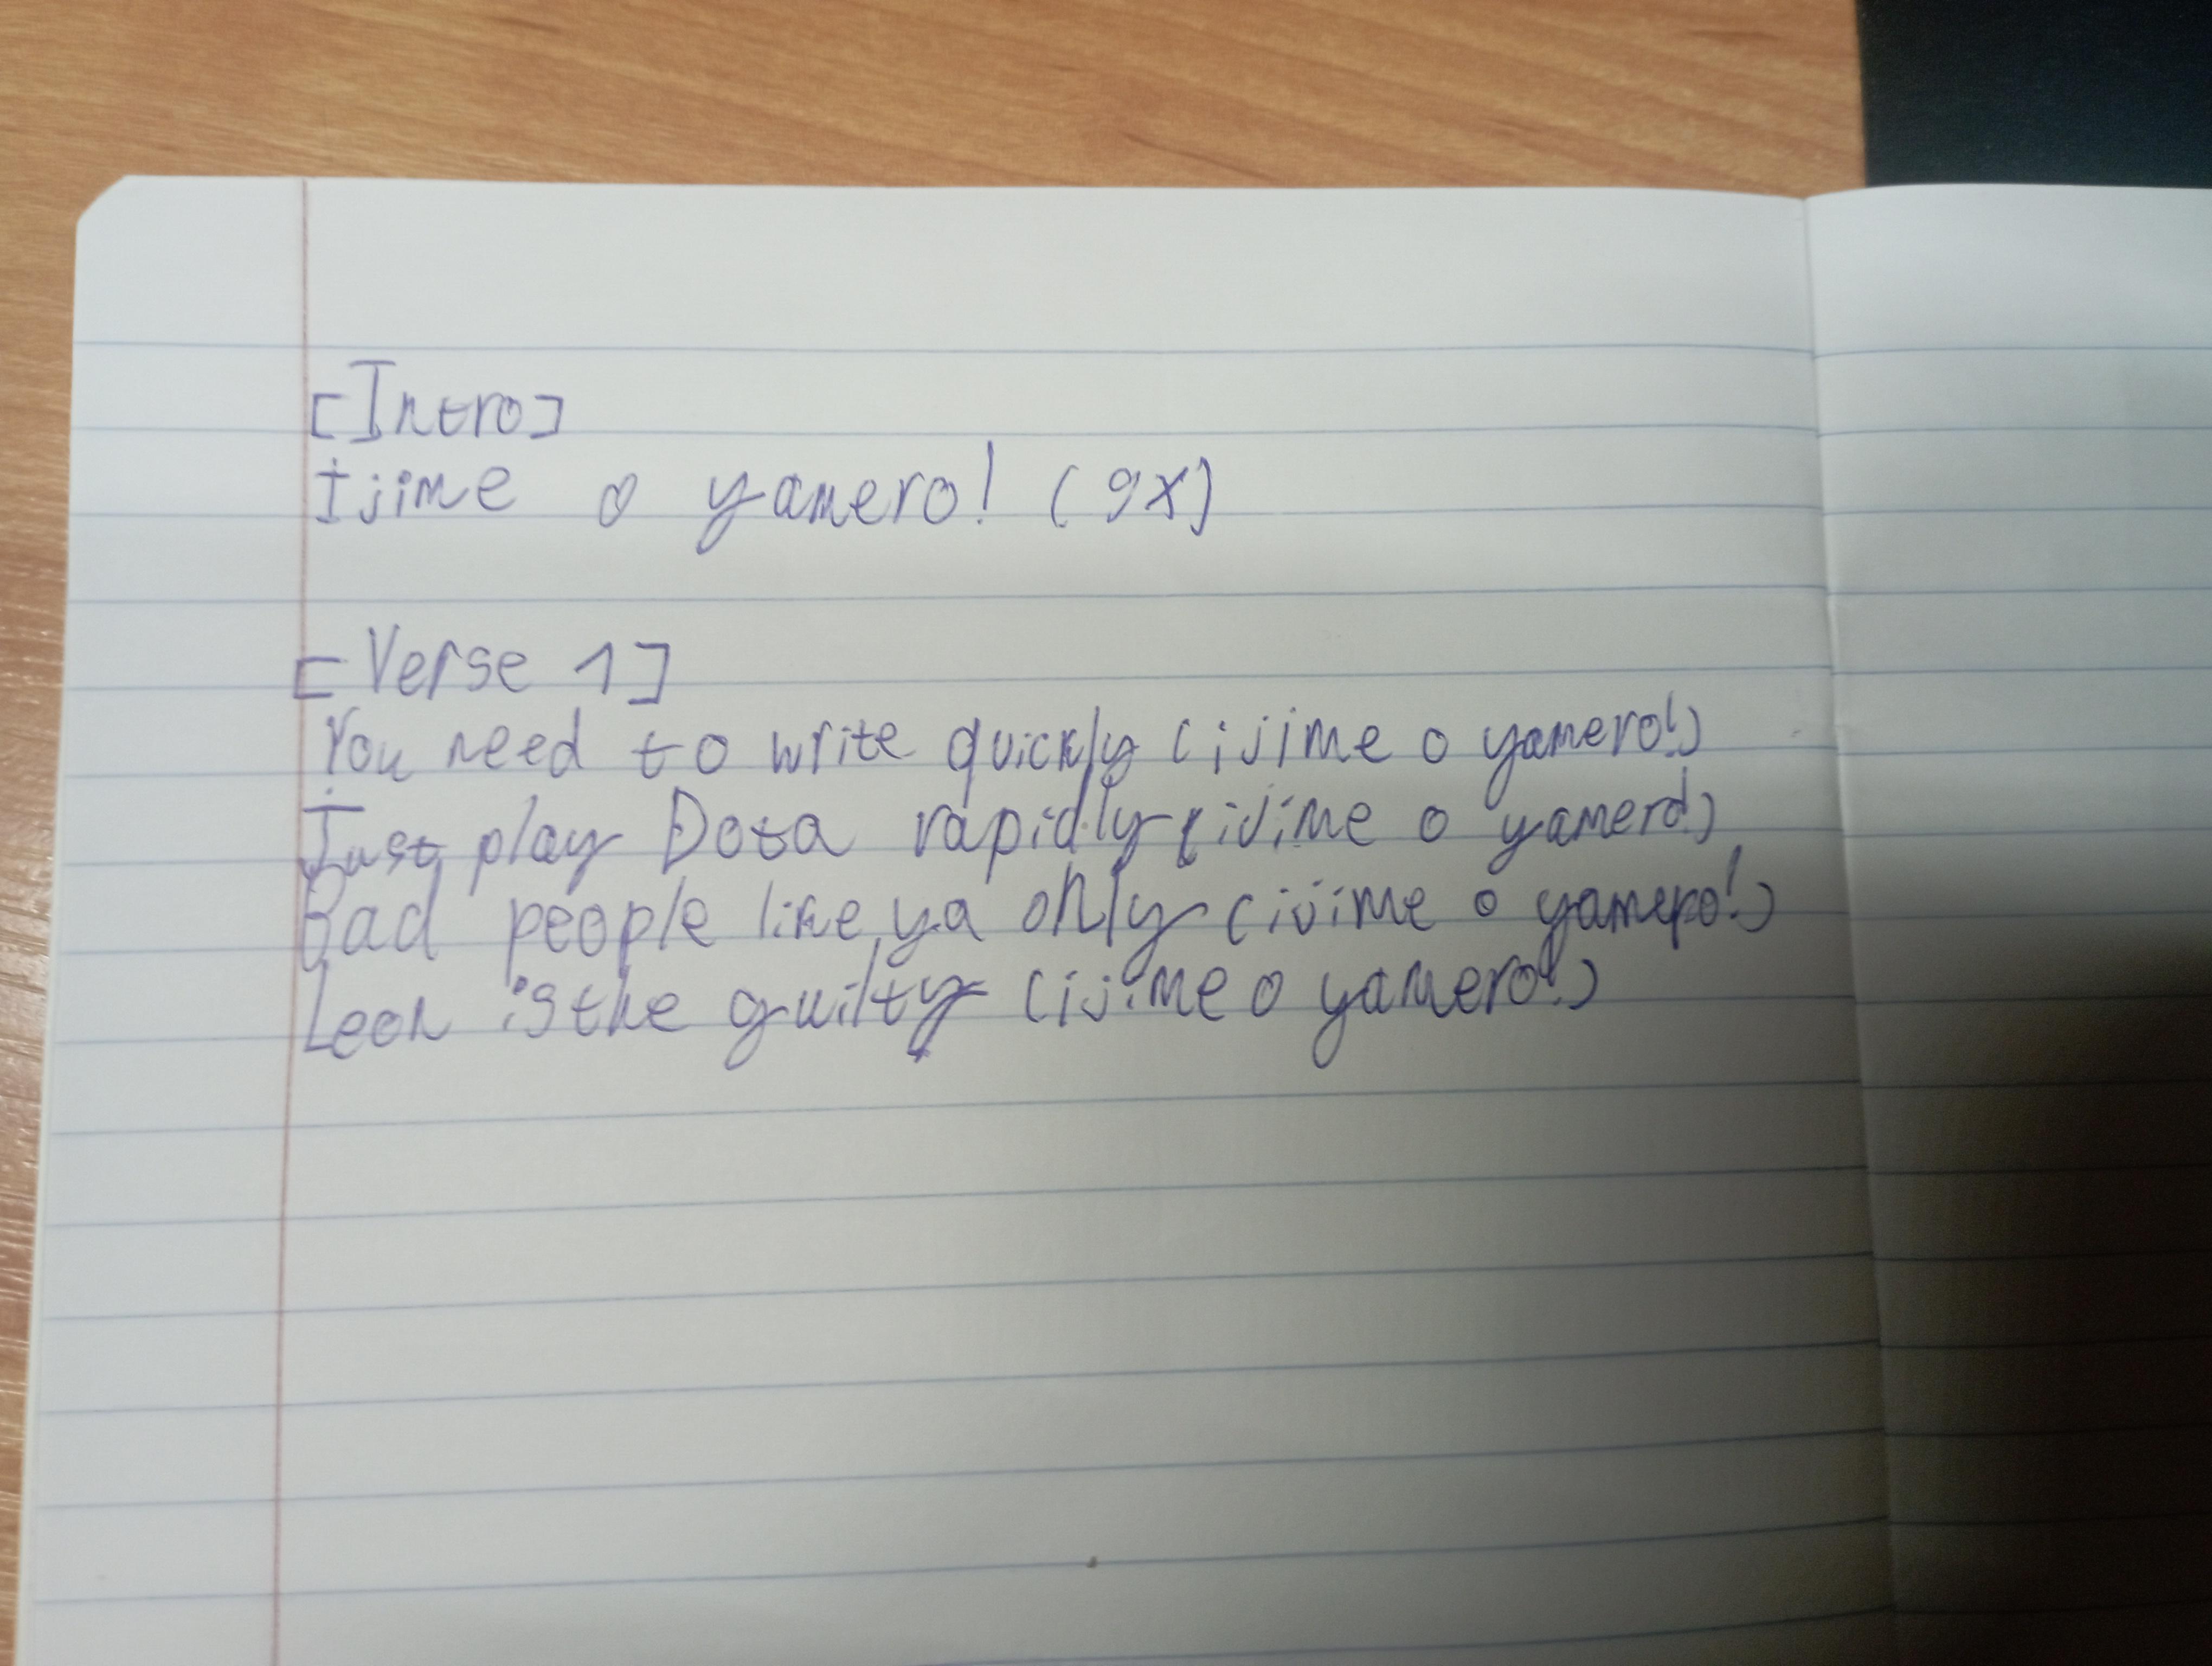 [Intro]
Ijime o yamero! (9x)
[Verse 1]
You need to write quickly (ijime o yamero!)
Just play Dota rapidly (ijime o yamero!)
Bad people like ya only (ijime o yamero!)
Leon is the guilty (ijime o yamero!)